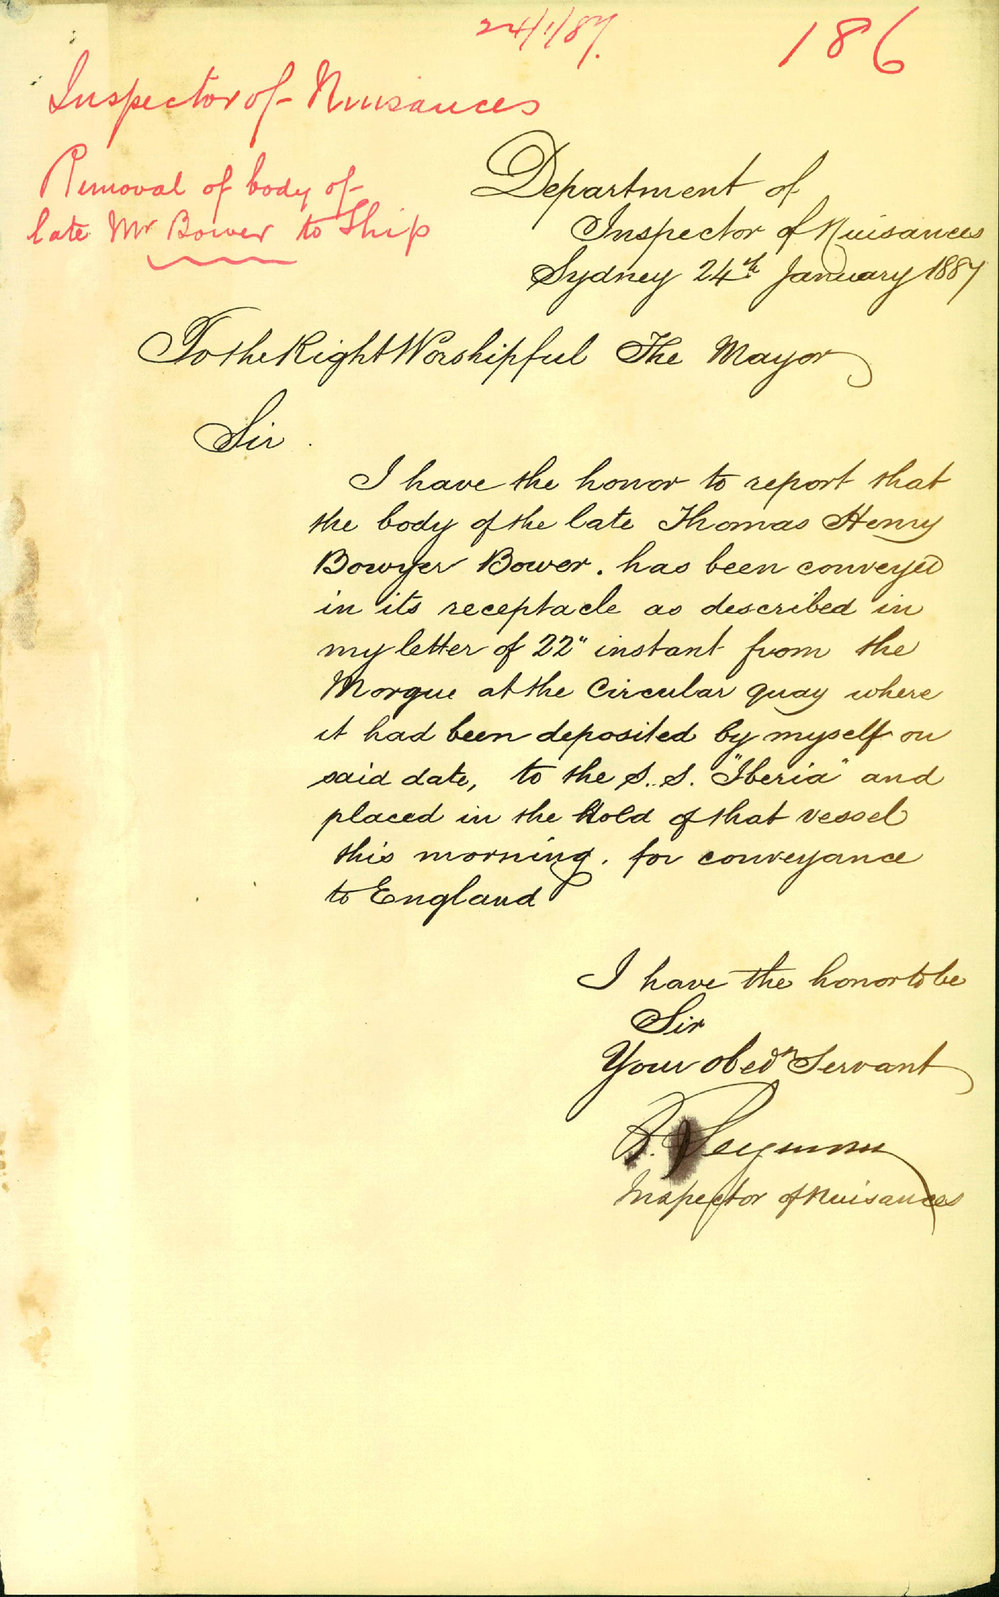 24/1/87.
186
Inspector of Nuisances
Removal of body of
late Mr Bower to Ship
Department of
Inspector of Nuisances
Sydney 24th January 1887
To the Right Worshipful The Mayor
Sir.
I have the honor to report that
the body of the late Thomas Henry
Bowyer Bower. has been conveyed
in its receptacle as described in
my letter of 22" instant from the
Morgue at the Circular quay where
it had been deposited by myself on
said date, to the S.S. "Iberia" and
placed in the hold of that vessel
this morning. for conveyance
to England
I have the honor to be
Sir
Your obedt Servant
Seymour
Inspector of Nuisances